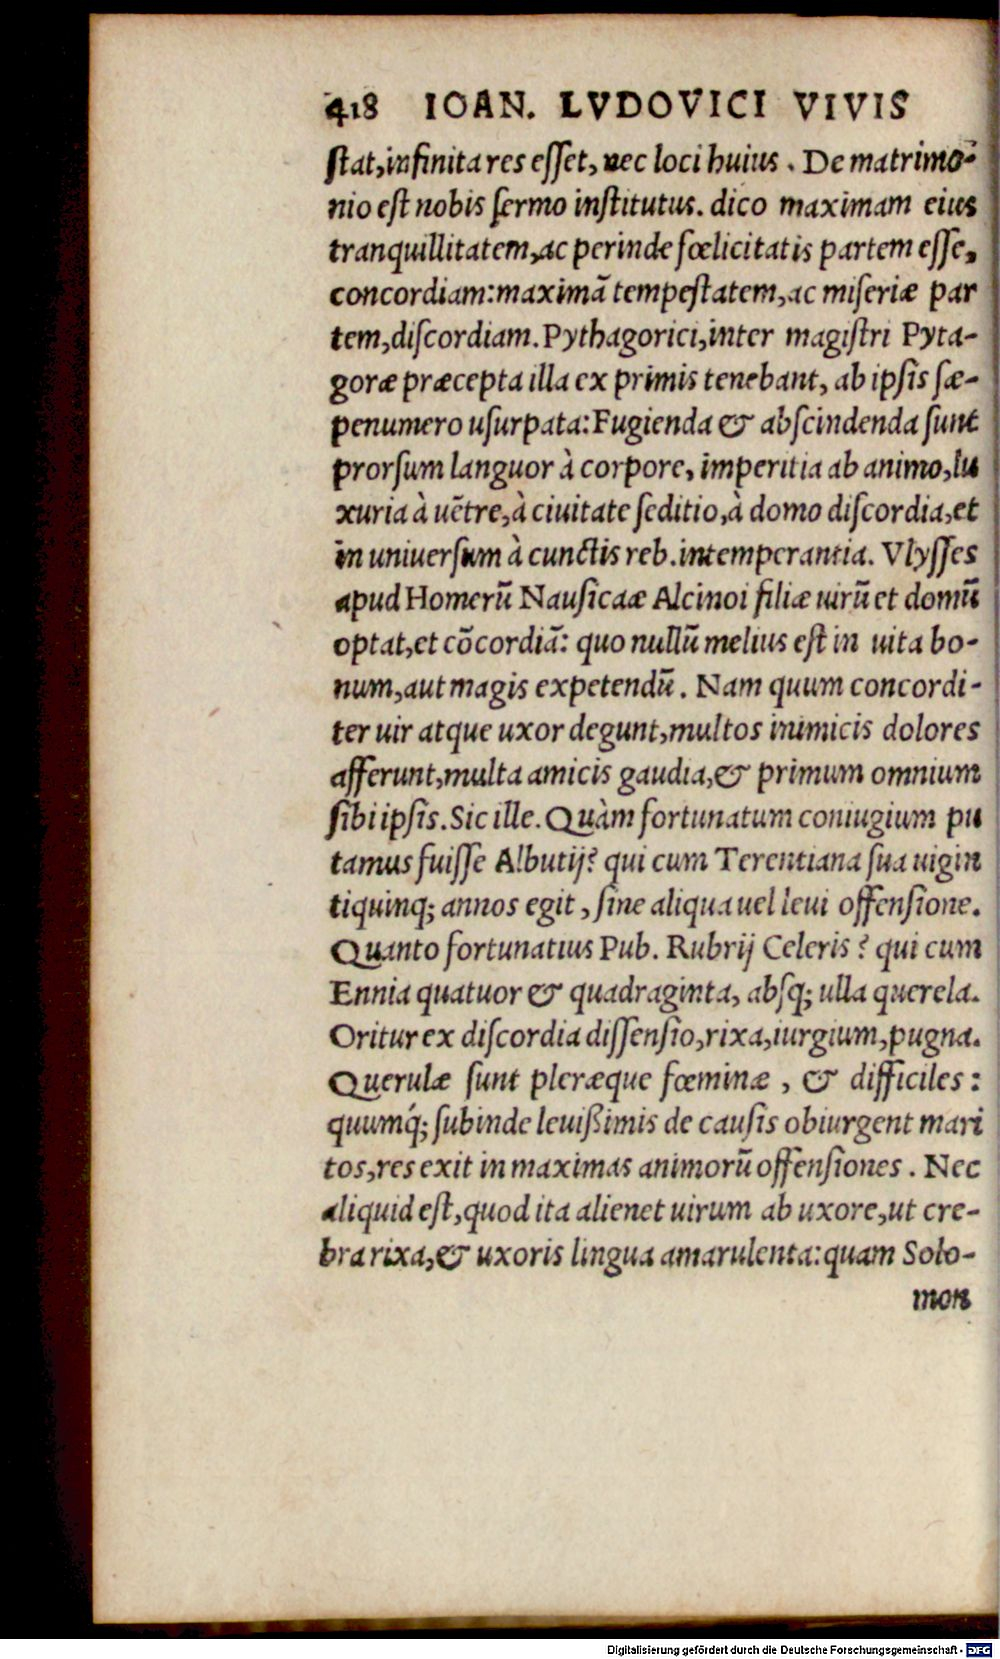 418 IOAN. LVDOVICI VIVIS
stat, infinita res esset, nec loci huius. De matrimo-
nio est nobis sermo institutus. dico maximam eius
tranquillitatem, ac perinde fœlicitatis partem esse,
concordiam: maximã tempestatem, ac miseriæ par
tem, discordiam. Pythagorici, inter magistri Pyta-
goræ præcepta illa ex primis tenebant, ab ipsis sæ-
penumero usurpata: Fugienda & abscindenda sunt
prorsum languor à corpore, imperitia ab animo, lu
xuria à uẽtre, à ciuitate seditio, à domo discordia, et
in uniuersum à cunctis reb. intemperantia. Vlysses
apud Homerũ Nausicaæ Alcinoi filiæ uirũ et domũ
optat, et cõcordiã: quo nullũ melius est in uita bo-
num, aut magis expetendũ. Nam quum concordi-
ter uir atque uxor degunt, multos inimicis dolores
afferunt, multa amicis gaudia, & primum omnium
sibi ipsis. Sic ille. Quàm fortunatum coniugium pu
tamus fuisse Albutij? qui cum Terentiana sua uigin
tiquinq; annos egit, sine aliqua uel leui offensione.
Quanto fortunatius Pub. Rubrij Celeris? qui cum
Ennia quatuor & quadraginta, absq; ulla querela.
Oritur ex discordia dissensio, rixa, iurgium, pugna.
Querulæ sunt pleræque fœminæ, & difficiles:
quumq́; subinde leuißimis de causis obiurgent mari
tos, res exit in maximas animorũ offensiones. Nec
aliquid est, quod ita alienet uirum ab uxore, ut cre-
bra rixa, & uxoris lingua amarulenta: quam Solo-
mon
Digitalisierung gefördert durch die Deutsche Forschungsgemeinschaft - DFG